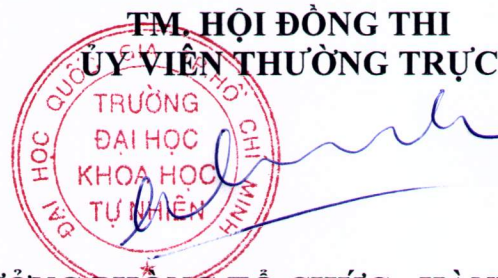 TM. HỘI ĐỒNG THI
ỦY VIÊN THƯỜNG TRỰC
ĐẠI HỌC QUỐC GIA HỒ CHÍ MINH
TRƯỜNG
ĐẠI HỌC
KHOA HỌC
TỰ NHIÊN